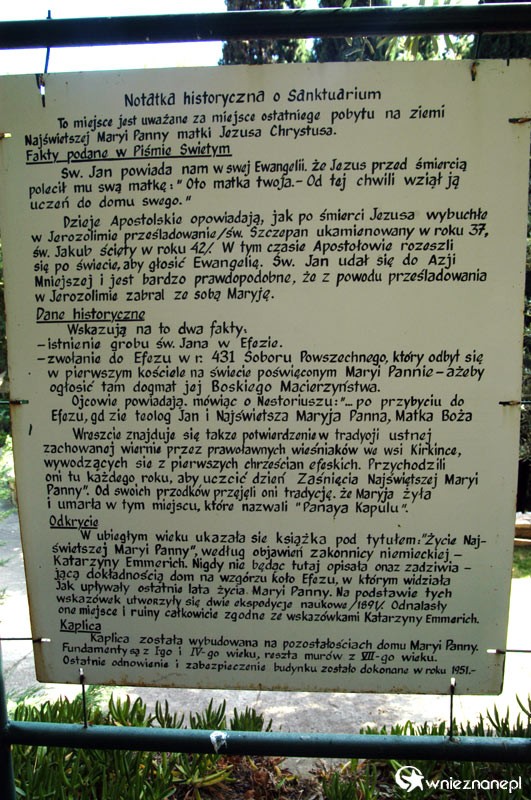 Notatka historyczna o Sanktuarium
To miejsce jest uważane za miejsce ostatniego pobytu na ziemi
Najświetszej Maryi Panny matki Jezusa Chrystusa.
Fakty podane w Piśmie Świetym
Św. Jan powiada nam w swej Ewangelii, że Jezus przed śmiercią
polecił mu swą matkę: "Oto matka twoja.- Od tej chwili wziął ją
uczeń do domu swego."
Dzieje Apostolskie opowiadają, jak po śmierci Jezusa wybuchłe
w Jerozolimie prześladowanie/św. Szczepan ukamienowany w roku 37,
św. Jakub ścięty w roku 42/. W tym czasie Apostołowie rozeszli
się po świecie, aby głosić Ewangelię. Św. Jan udał się do Azji
Mniejszej i jest bardzo prawdopodobne, że z powodu prześladowania
w Jerozolimie zabral ze sobą Maryję.
Dane historyczne
Wskazują na to dwa fakty:
-istnienie grobu św. Jana w Efezie.
-zwołanie do Efezu w r. 431 Soboru Powszechnego, który odbył się
w pierwszym kościele na świecie poświęconym Maryi Pannie-ażeby
ogłosić tam dogmat jej Boskiego Macierzyństwa.
Ojcowie powiadają, mówiąc o Nestoriuszu: "... po przybyciu do
Efezu, gd zie teolog Jan i Najświetsza Maryja Panna, Matka Boża
Wreszcie znajduje się takze potwierdzenie w tradycji ustnej
zachowanej wiernie przez prawosławnych wieśniaków we wsi Kirkince,
wywodzących sie z pierwszych chrześcian efeskich. Przychodzili
oni tu każdego roku, aby uczcić dzień Zaśnięcia Najświętszej Maryi
Panny". Od swoich przodków przejęli oni tradycję, że Maryja żyła
i umarła w tym miejscu, które nazwali "Panaya Kapulu".
Odkrycie
W ubiegłym wieku ukazała sie książka pod tytułem: "Życie Naj-
świetszej Maryi Panny", według objawień zakonnicy niemieckiej-
Katarzyny Emmerich. Nigdy nie będąc tutaj opisała onaz zadziwia-
jącą dokładnością dom na wzgórzu koło Efezu, w którym widziała
Jak upływały ostatnie lata życia Maryi Panny. Na podstawie tych
wskazówek utworzyły się dwie ekspodycje naukowe/1891/. Odnalasły
one miejsce i ruiny całkowicie zgodne ze wskazówkami Katarzyny Emmerich.
Kaplica
Kaplica została wybudowana na pozostałościach domu Maryi Panny.
Fundamenty są z Igo i IV-go wieku, reszta murów z VII-go wieku.
Ostatnie odnowienie i zabezpieczenie budynku zostało dokonane w roku 1951.-
wnieznane.pl